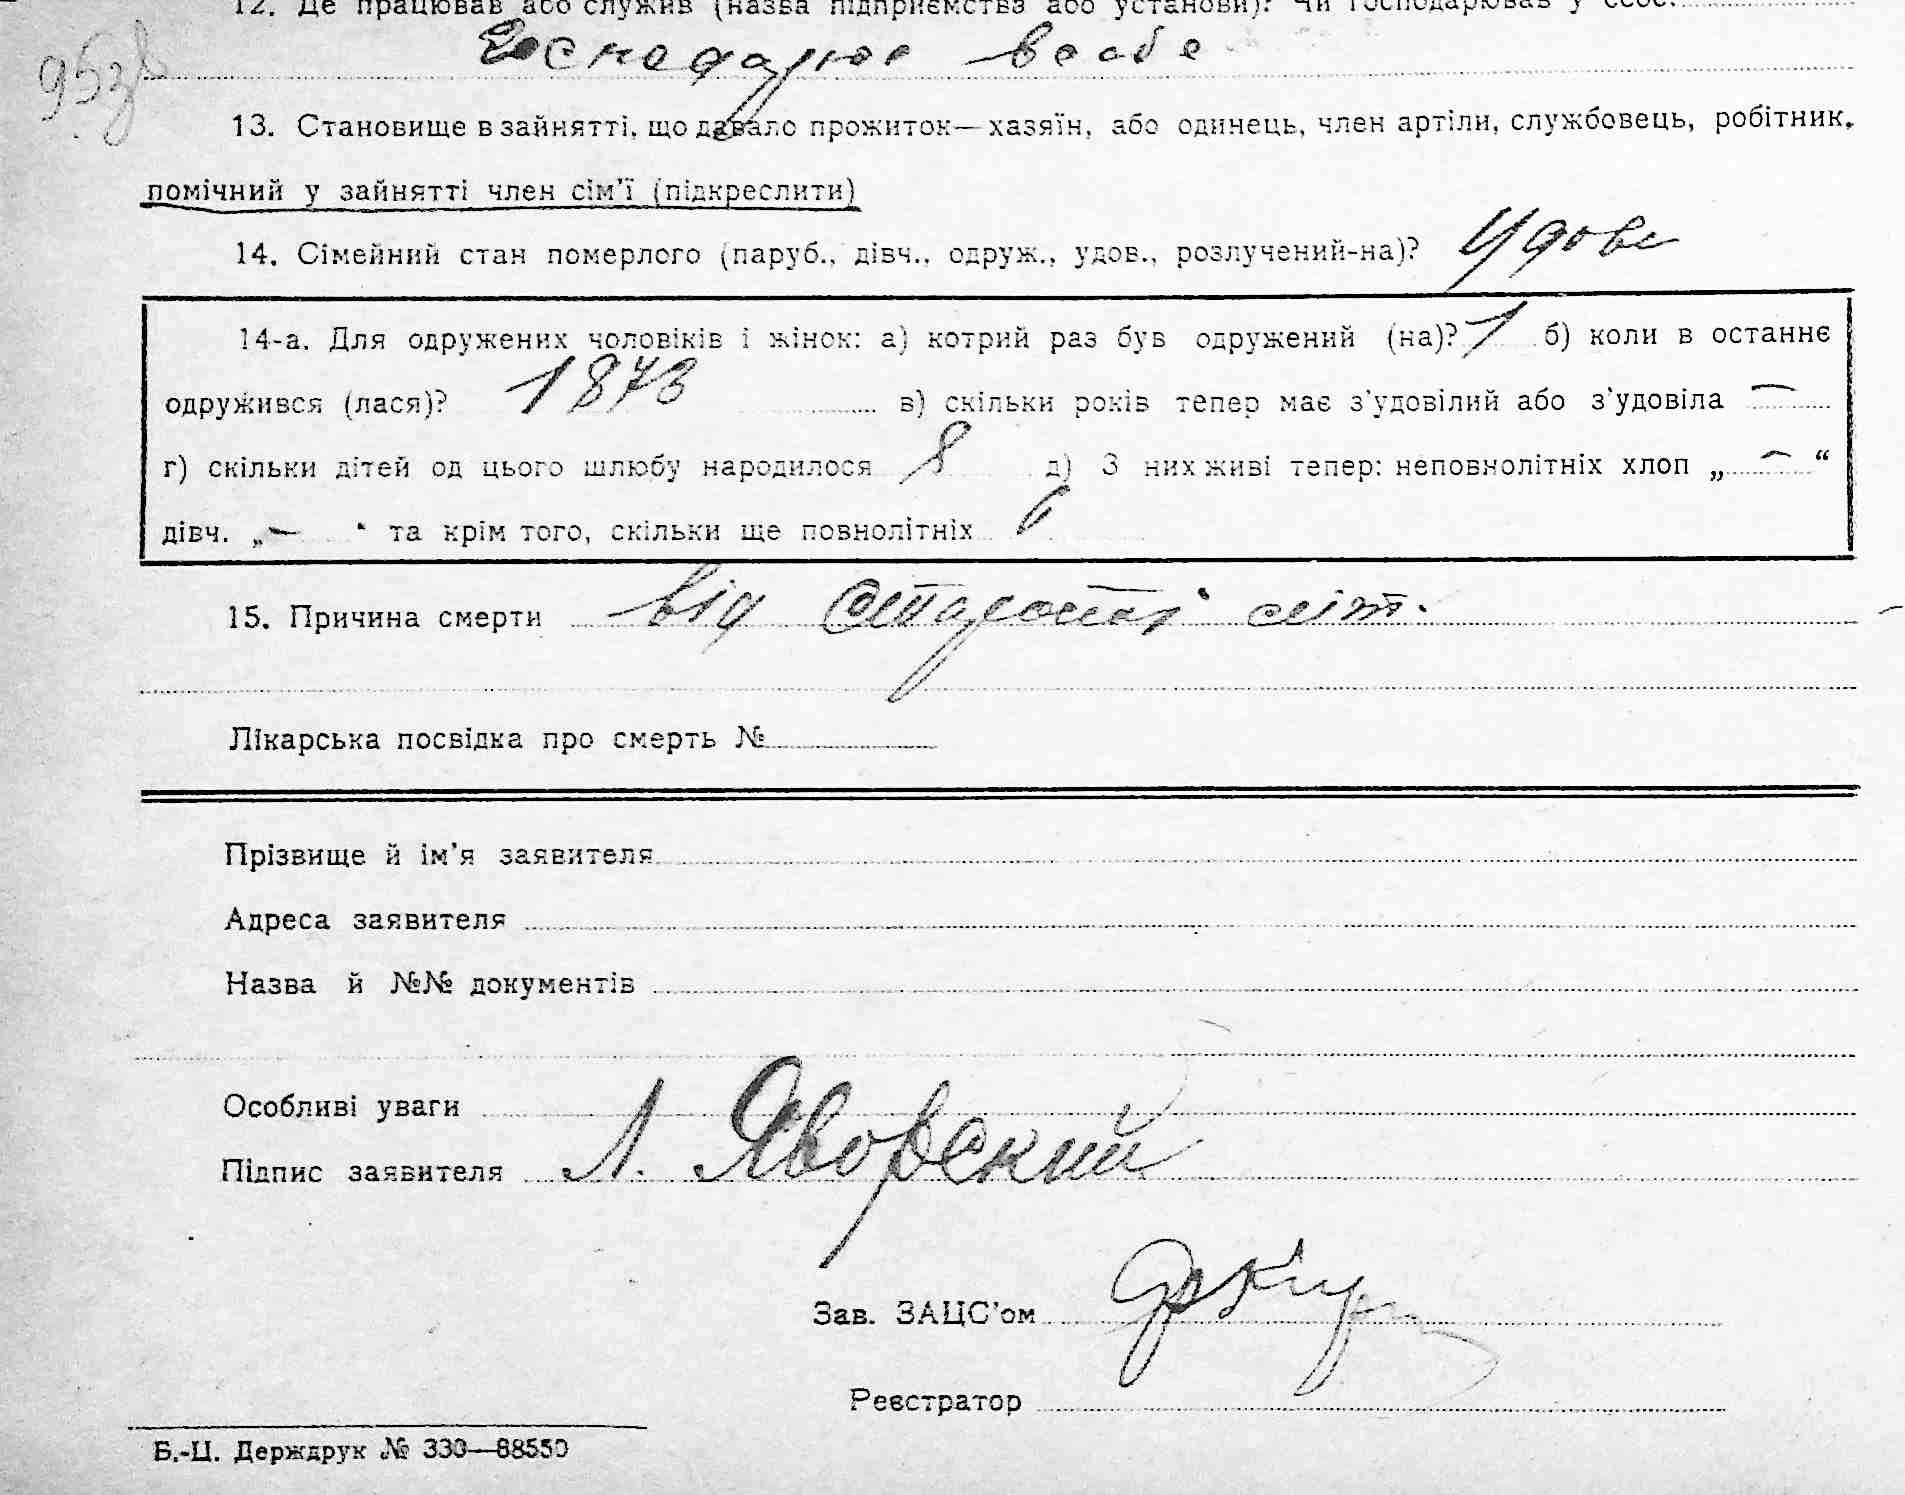 12. Де працював або служив (назва підприємства або установи)? Чи господарював у себе?
Господарює в себе
13. Становище в зайнятті, що давало прожиток—хазяїн, або одинець, член артіли, службовець, робітник,
помічний у зайнятті член сім'ї (підкреслити)
14. Сімейний стан померлого (паруб., дівч., одруж., удов., розлучений-на)? Удове
14-а. Для одружених чоловіків і жінок: а) котрий раз був одружений (на)? 1 б) коли в останнє
одружився (лася)? 1873 в) скільки років тепер має з'удовілий або з'удовіла —
г) скільки дітей од цього шлюбу народилося 8 д) З них живі тепер: неповнолітніх хлоп „ — “
дівч. „ — “ та крім того, скільки ще повнолітніх 6
15. Причина смерти від старости літ.
Лікарська посвідка про смерть №
Прізвище й ім'я заявителя
Адреса заявителя
Назва й №№ документів
Особливі уваги
Підпис заявителя Л. Яворский
Зав. ЗАЦС'ом
Реєстратор
Б.-Ц. Держдрук № 330—88550